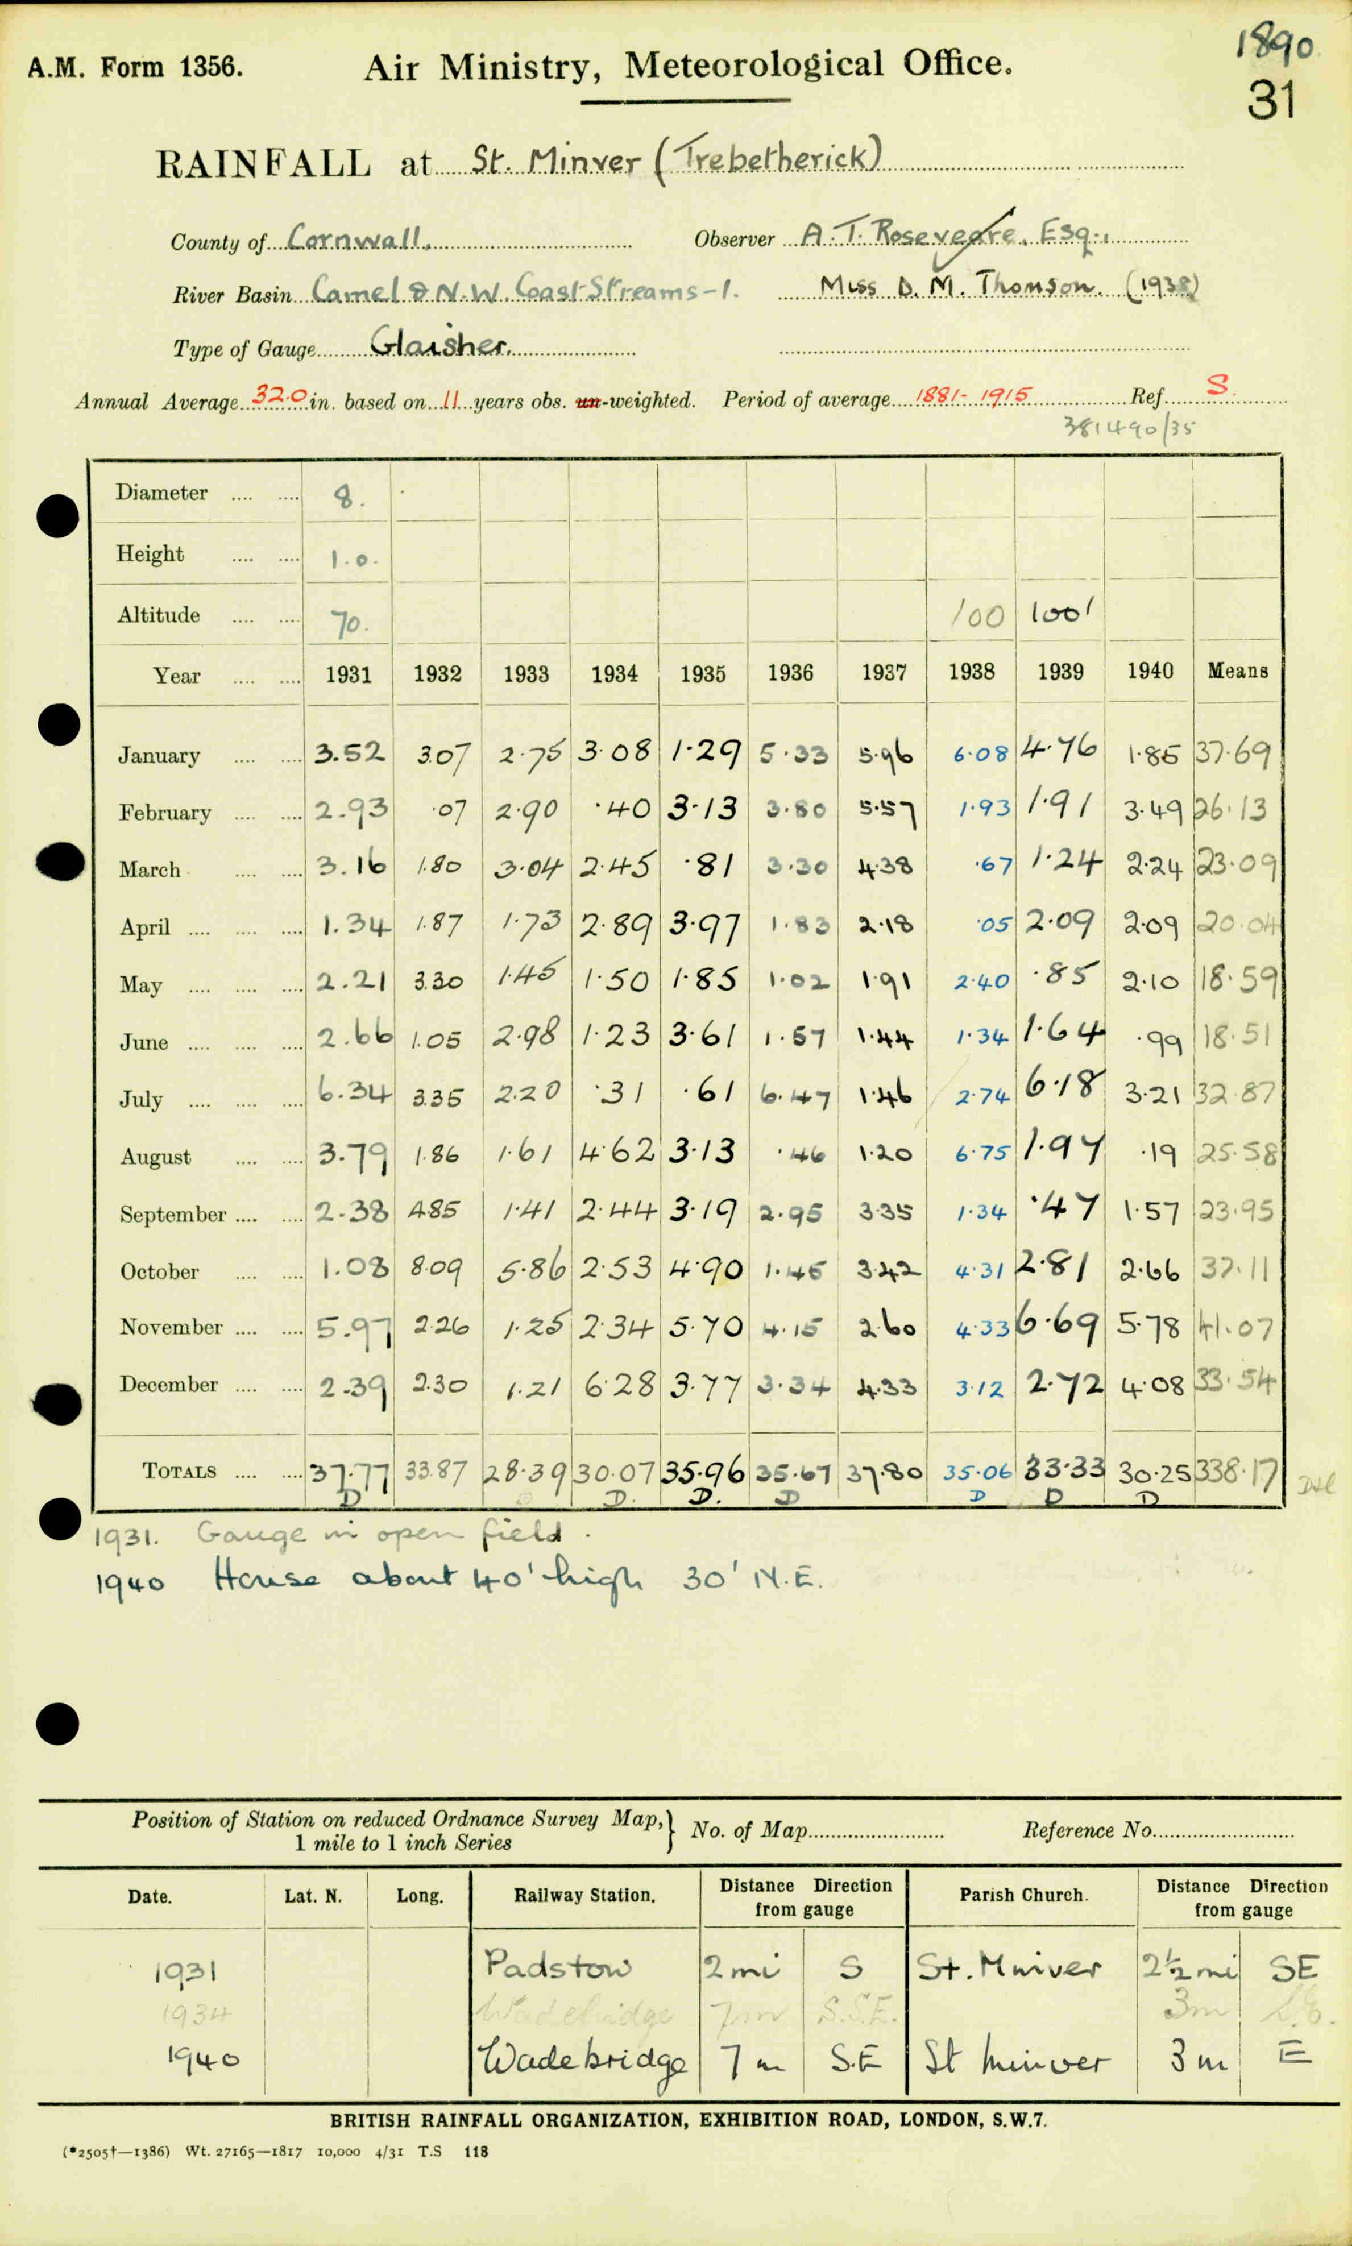 1890.
A.M. Form 1356. Air Ministry, Meteorological Office.
31
RAINFALL at St. Minver (Trebetherick)
County of Cornwall. Observer A. T. Rosevegre, Esq.,
River Basin Camel & N.W. Coast Streams-1. Miss D. M. Thomson. (1938)
Type of Gauge Glaisher.
Annual Average 32.0 in. based on 11 years obs. un-weighted. Period of average 1881-1915 Ref. S.
381490/35
Diameter .... .... 8.
Height .... .... 1.0.
Altitude .... .... 70. 100 100'
Year .... .... 1931 1932 1933 1934 1935 1936 1937 1938 1939 1940 Means
January .... .... 3.52 3.07 2.75 3.08 1.29 5.33 5.96 6.08 4.76 1.85 37.69
February .... .... 2.93 .07 2.90 .40 3.13 3.80 5.57 1.93 1.91 3.49 26.13
March .... .... 3.16 1.80 3.04 2.45 .81 3.30 4.38 .67 1.24 2.24 23.09
April .... .... .... 1.34 1.87 1.73 2.89 3.97 1.83 2.18 .05 2.09 2.09 20.04
May .... .... .... 2.21 3.30 1.45 1.50 1.85 1.02 1.91 2.40 .85 2.10 18.59
June .... .... .... 2.66 1.05 2.98 1.23 3.61 1.57 1.44 1.34 1.64 .99 18.51
July .... .... .... 6.34 3.35 2.20 .31 .61 6.47 1.46 2.74 6.18 3.21 32.87
August .... .... 3.79 1.86 1.61 4.62 3.13 .46 1.20 6.75 1.97 .19 25.58
September .... .... 2.38 4.85 1.41 2.44 3.19 2.95 3.35 1.34 .47 1.57 23.95
October .... .... 1.08 8.09 5.86 2.53 4.90 1.45 3.42 4.31 2.81 2.66 37.11
November .... .... 5.97 2.26 1.25 2.34 5.70 4.15 2.60 4.33 6.69 5.78 41.07
December .... .... 2.39 2.30 1.21 6.28 3.77 3.34 4.33 3.12 2.72 4.08 33.54
TOTALS .... .... 37.77 33.87 28.39 30.07 35.96 35.67 37.80 35.06 33.33 30.25 338.17
D D. D. D D D D
1931. Gauge in open field.
1940 House about 40' high 30' N.E.
Position of Station on reduced Ordnance Survey Map,} No. of Map Reference No.
1 mile to 1 inch Series
Date. Lat. N. Long. Railway Station. Distance Direction from gauge Parish Church. Distance Direction from gauge
1931 Padstow 2 mi S St. Mniver 2½ mi SE
1934 Wadebridge 7m S.S.E. 3m S.E.
1940 Wadebridge 7 m S.E St Minver 3 m E
BRITISH RAINFALL ORGANIZATION, EXHIBITION ROAD, LONDON, S.W.7.
(*2505†—1386) Wt. 27165—1817 10,000 4/31 T.S 118